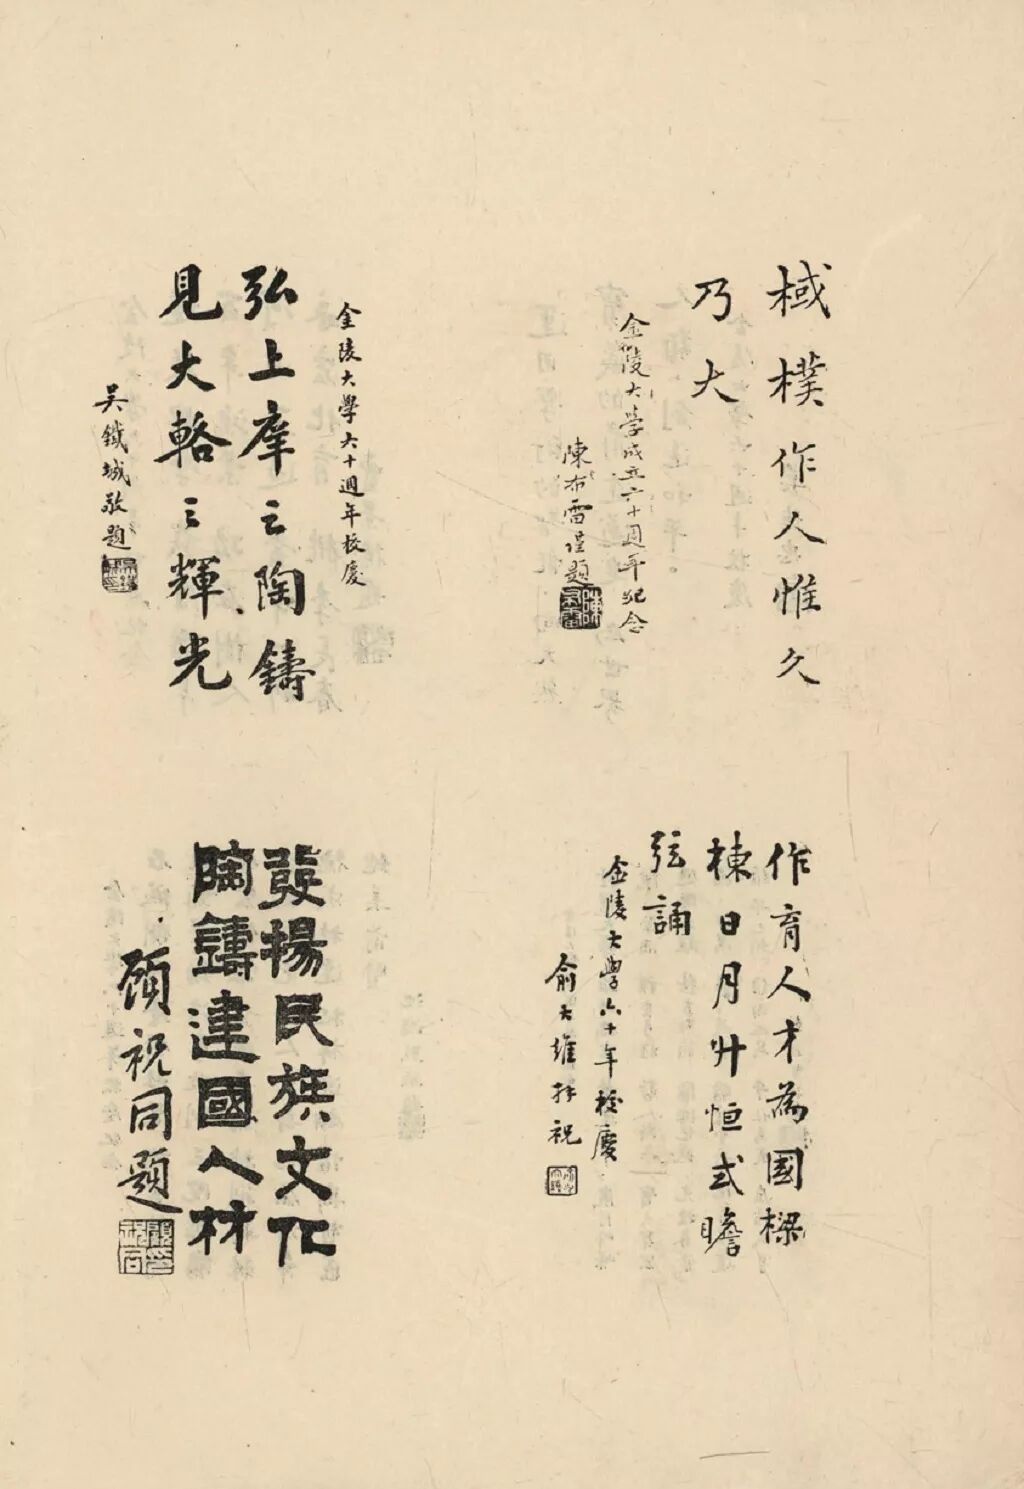 棫樸作人惟久
乃大
金陵大學成立六十週年紀念
陳布雷謹題
金陵大學六十週年校慶
弘上庠之陶鑄
見大輅之輝光
吳鐵城敬題
作育人才為國樑
棟日月升恒式瞻
弦誦
金陵大學六十年校慶
俞大維拜祝
發揚民族文化
陶鑄建國人材
顧祝同題